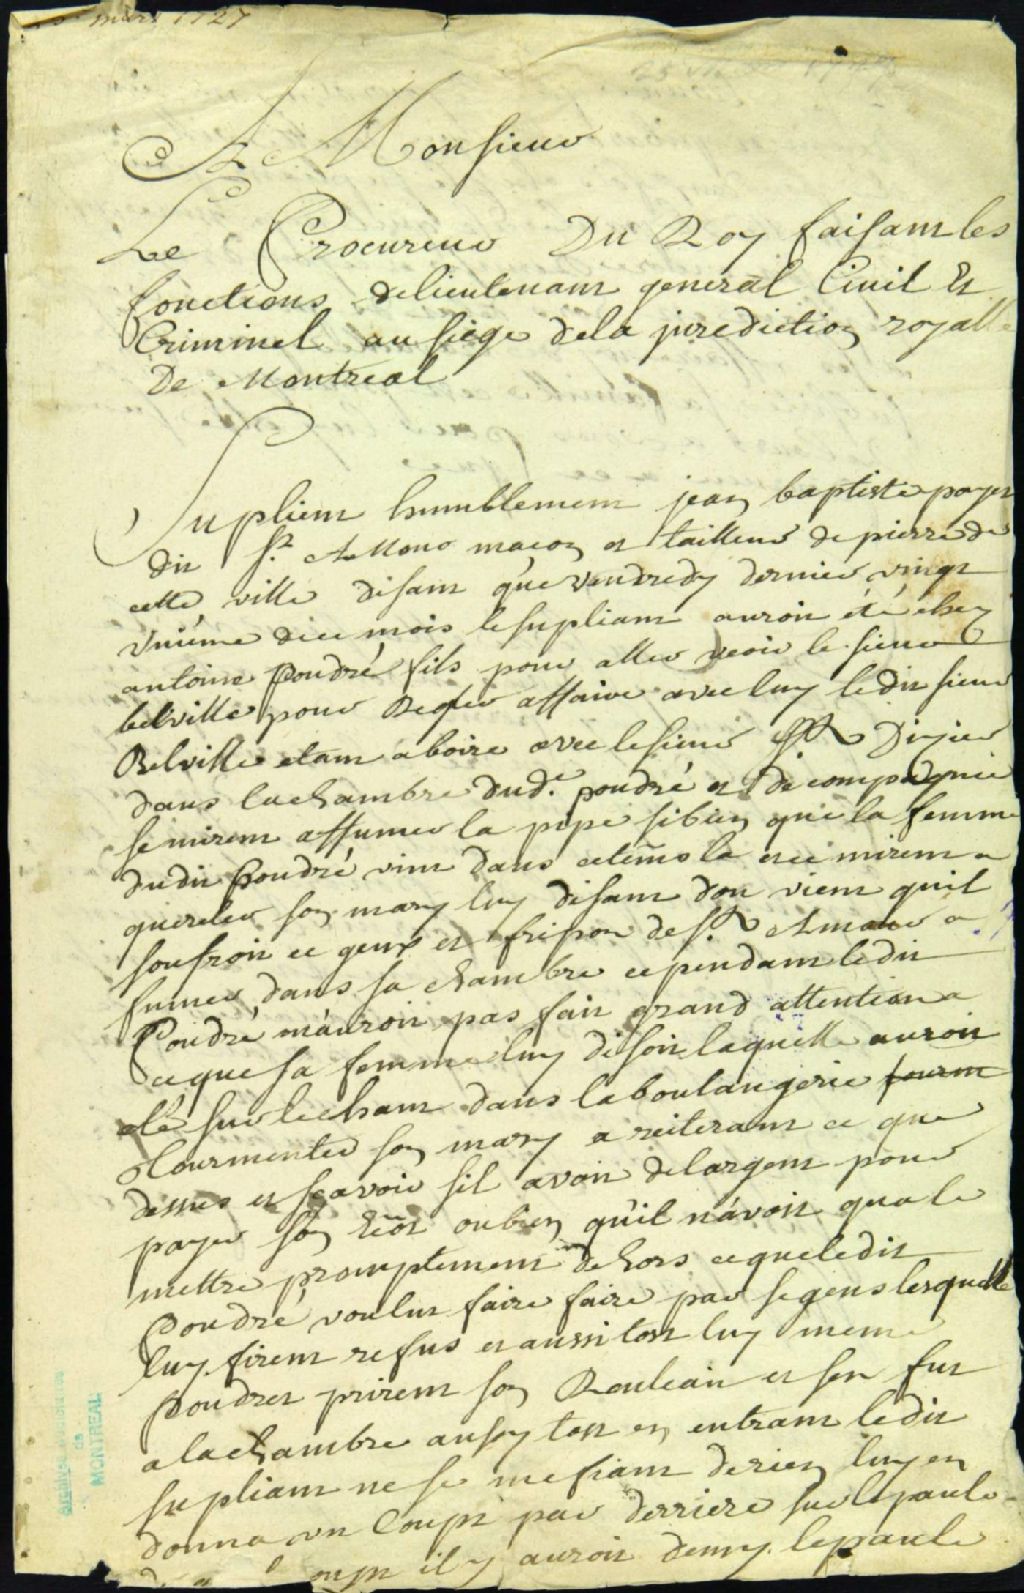 mars 1727
A Monsieur
Le Procureur Du Roy faisant les
fonctions de lieutenant general Civil Et
Criminel au siege de la juridiction royalle
De Montreal
Supliem humblement jean baptiste payet
dit St. Amour macon et tailleur de pierre de
cette ville disant que vendredy dernier vingt
uniéme de ce mois le supliant auroit été chez
antoine Poudré fils pour aller veoir le sieur
belville pour affaire avec luy ledit sieur
Belville etant a boire avec le sieur St Dizier
dans la chambre dud. poudré et de compagnie
se mirent a ffumer la pipe si bien que la femme
dudit Poudré vint dans ce tems la et ce mirent a
quereler son mary luy disant dou vient quil
soufroit ce geux et fripon de St Amour a
fumer dans sa chambre cependant ledit
Poudré n'auroit pas fait grand attention a
ce que sa femme luy disoit laquelle auroit
été sur le cham dans la boulangerie
tourmenter son mary a reiterant ce que
dessus et scavoir sil avoit de largent pour
payer son ecot ou bien qu'il n'avoit qua le
mettre promptement dehors ce que ledit
Poudré voulut faire faire par se gens lesquelle
luy firent refus et aussi tost luy meme
poudret prirent son Rouleau et sen fut
a la chambre aussy tost en entrant le dit
supliant ne se mefiant de rien luy en
donna un Coupt par derriere sur lepaule
oupt il y auroit demy lepaule
Archives
DE
MONTREAL